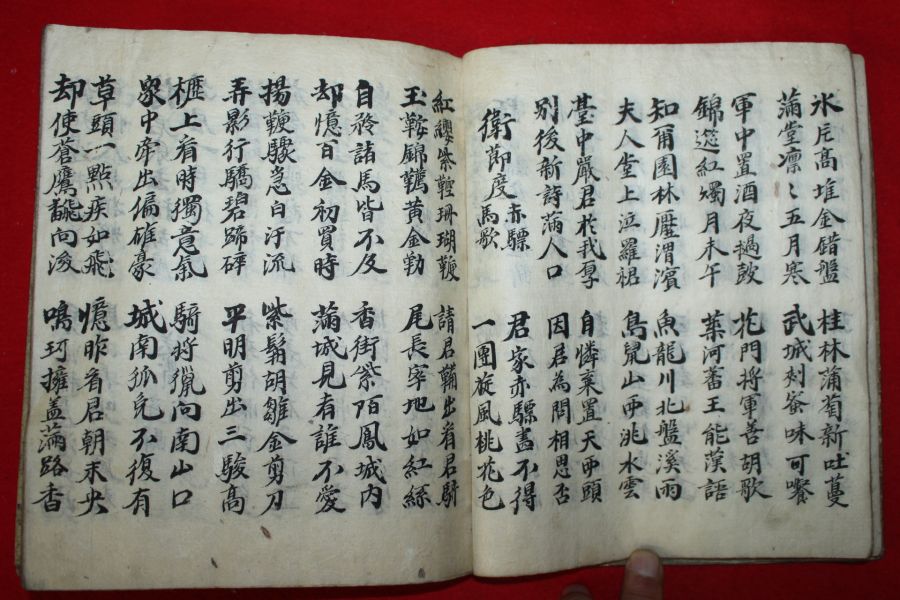 氷片高堆金錯盤 桂林蒲萄新吐蔓
滿堂凛〻五月寒 武城刾蜜味可餐
軍中置酒夜撾鼓 花門將軍善胡歌
錦筵紅燭月未午 葉河蕃王能漢語
知爾園林壓渭濱 魚龍川北盤溪雨
夫人堂上泣羅裙 鳥鼠山西洮水雲
臺中嚴君於我厚 自憐棄置天西頭
別後新詩滿人口 因君為問相思否
衛節度赤驃馬歌 君家赤驃畵不得
一團旋風桃花色
紅纓紫鞚珊瑚鞭 請君鞴出看君騎
玉鞍錦韉黃金勒 尾長窣地如紅絲
自矜諸馬皆不及 香街紫陌鳳城內
却憶百金初買時 滿城見者誰不愛
揚鞭驟急白汗流 紫髯胡雛金剪刀
弄影行驕碧蹄碎 平明剪出三駿高
櫪上看時獨意氣 騎將獵向南山口
衆中牽出偏雄豪 城南狐兔不復有
草頭一點疾如飛 憶昨看君朝未央
却使蒼鷹翻向後 鳴珂擁盖滿路香